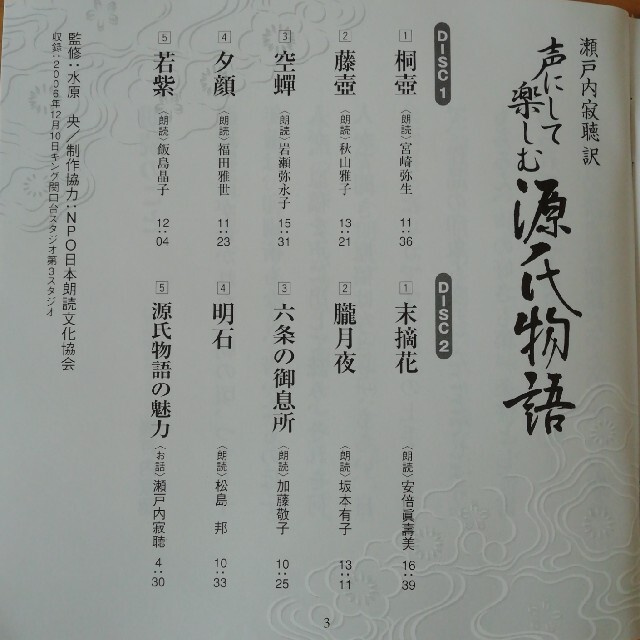 瀬戸内寂聴 訳
声にして
楽しむ
源氏物語
DISC 1
1 桐壺 〈朗読〉宮崎弥生 11:36
2 藤壺 〈朗読〉秋山雅子 13:21
3 空蟬 〈朗読〉岩瀬弥永子 15:31
4 夕顔 〈朗読〉福田雅世 11:23
5 若紫 〈朗読〉飯島晶子 12:04
DISC 2
1 末摘花 〈朗読〉安倍眞壽美 16:39
2 朧月夜 〈朗読〉坂本有子 13:11
3 六条の御息所 〈朗読〉加藤敬子 10:25
4 明石 〈朗読〉松島 邦 10:33
5 源氏物語の魅力 〈お話〉瀬戸内寂聴 4:30
監修:水原 央/制作協力:NPO日本朗読文化協会
収録:2006年12月10日キング関口台スタジオ第3スタジオ
3